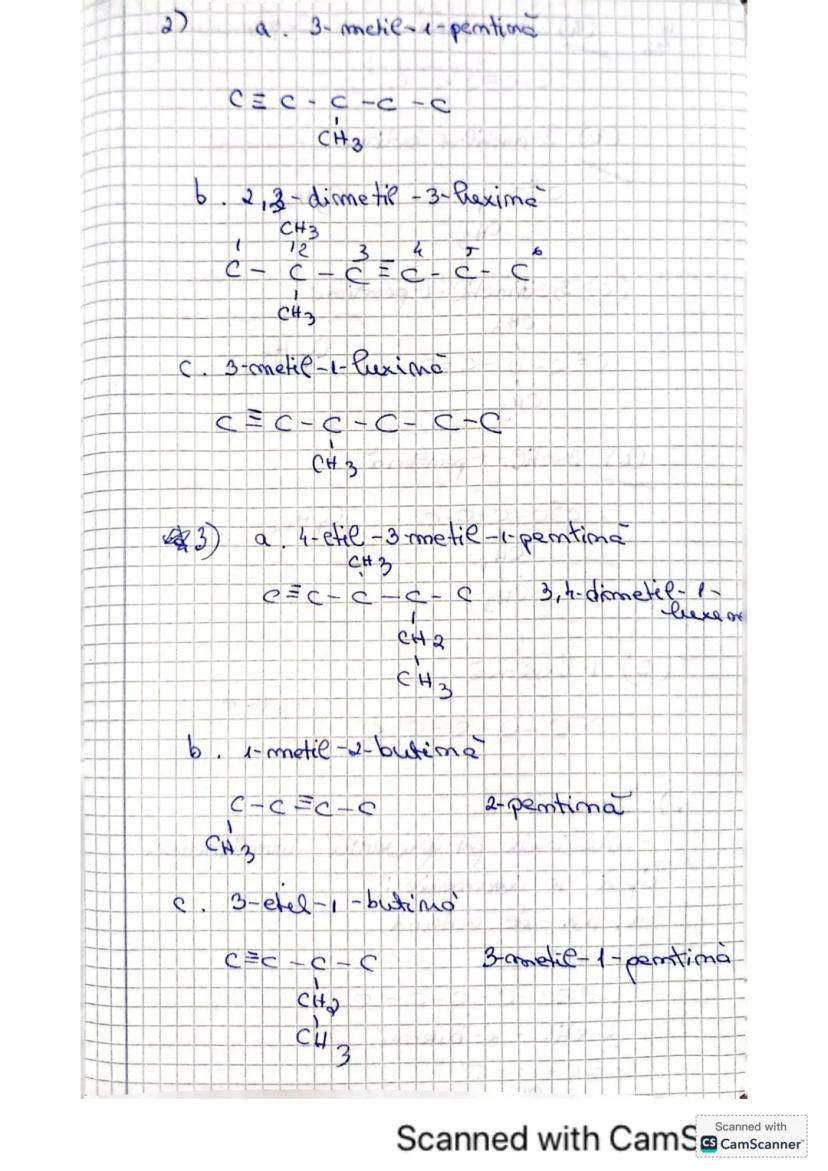 2) a. 3-metil-1-pentină
C ≡ C - C - C - C
CH3
b. 2,3-dimetil-3-hexină
CH3
1 2 3 4 5 6
C - C - C ≡ C - C - C
CH3
c. 3-metil-1-hexină
C ≡ C - C - C - C - C
CH3
3) a. 4-etil-3-metil-1-pentină
CH3
C ≡ C - C - C - C 3,4-dimetil-1-
CH2
CH3
b. 1-metil-2-butină
C - C ≡ C - C 2-pentină
CH3
c. 3-etil-1-butină
C ≡ C - C - C 3-metil-1-pentină
CH2
CH3
Scanned with CamS
Scanned with
CS CamScanner